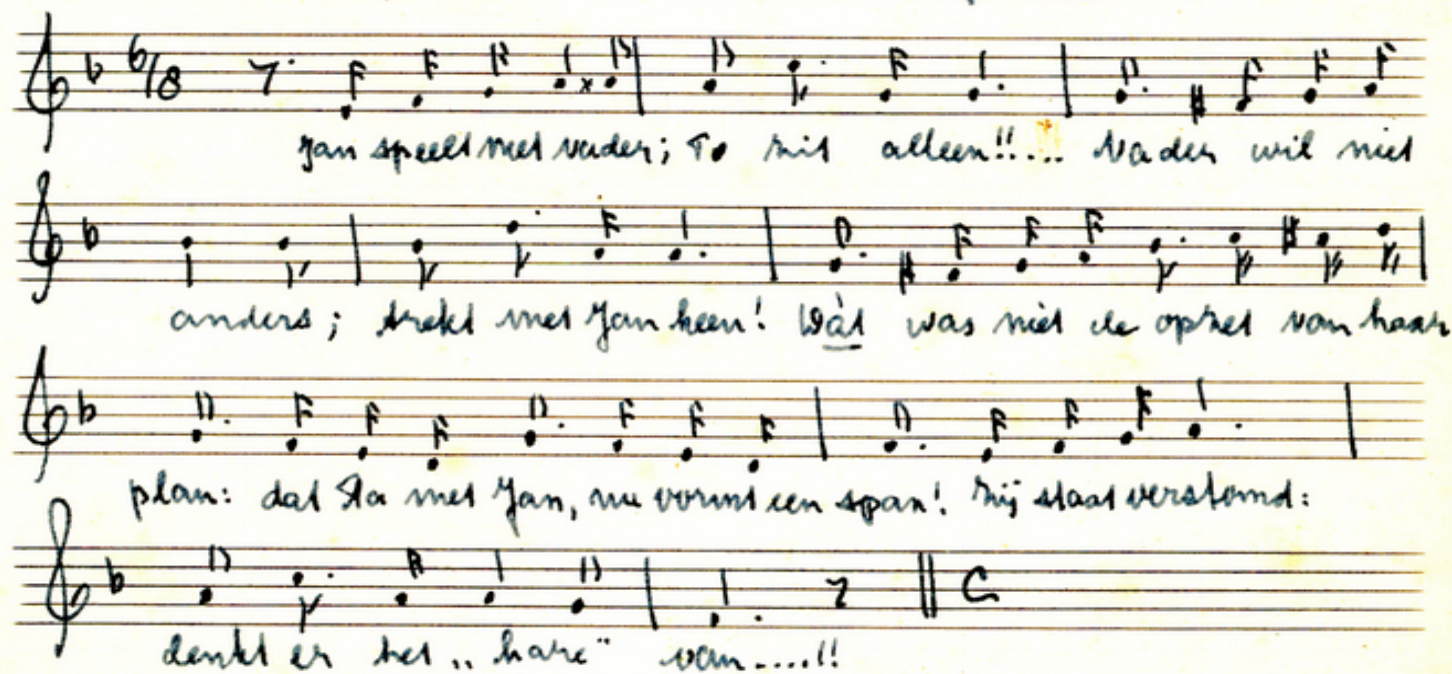 6/8
Jan speelt met vader; To zit alleen!!.... Vader wil niet
anders; trekt met Jan heen! Dàt was niet de opzet van haar
plan: dat Pa met Jan, nu vormt een span! Zij staat verstomd:
denkt er het „hare" van....!!
C